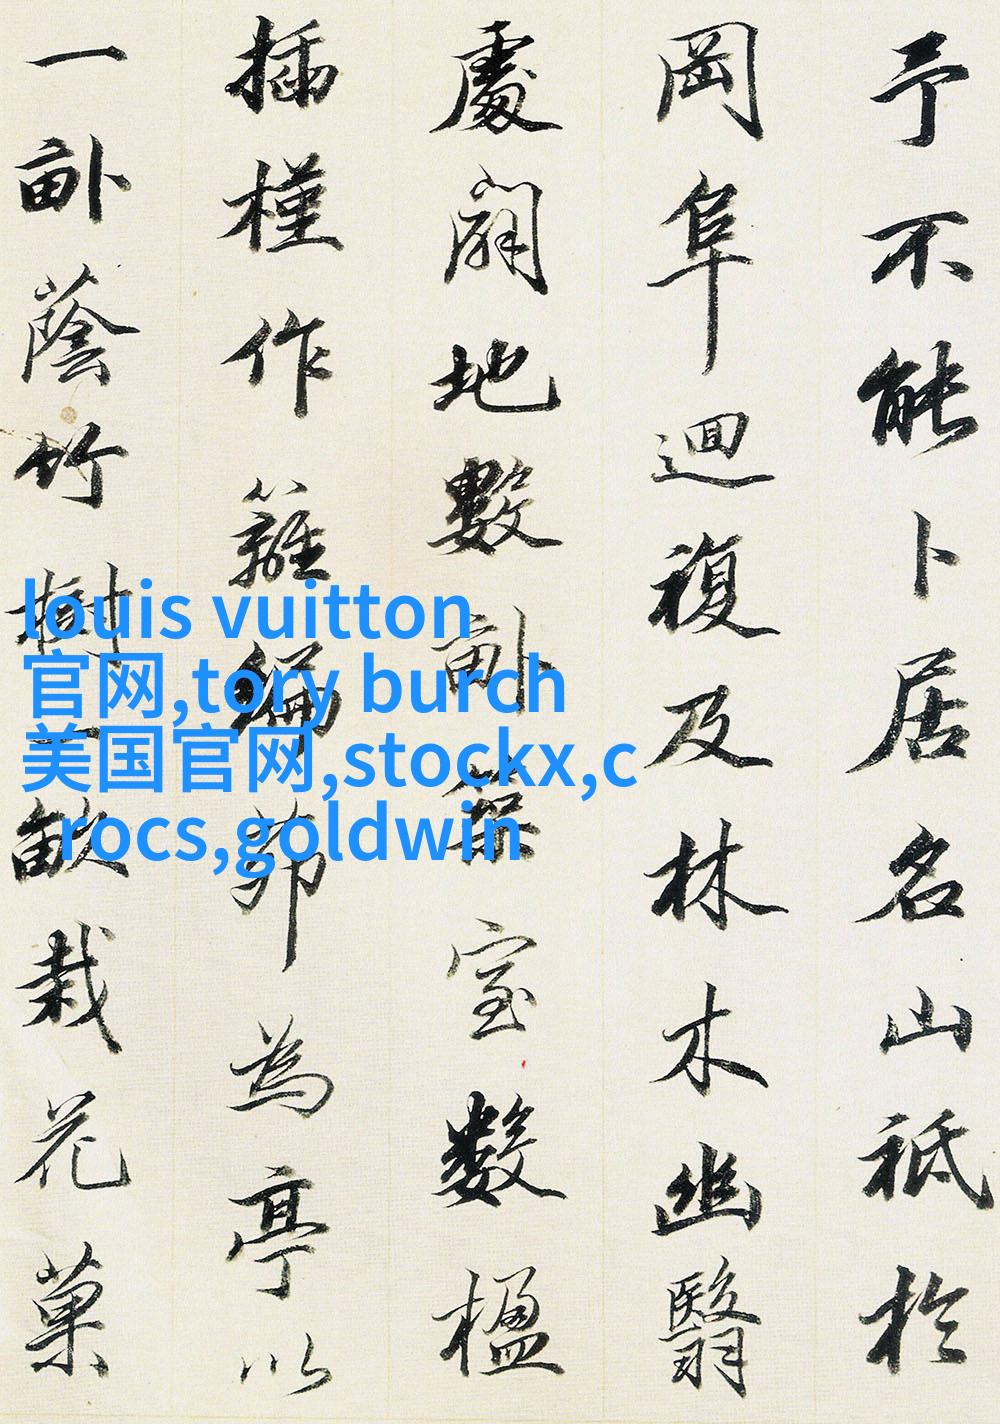 予不能卜居名山祗於
岡阜迴複及林木幽翳
處闢地數畝築室數楹
插槿作籬編茆為亭以
一畝蔭竹樹一畝栽花菓
louis vuitton
官网,tory burch
美国官网,stockx,c
rocs,goldwin